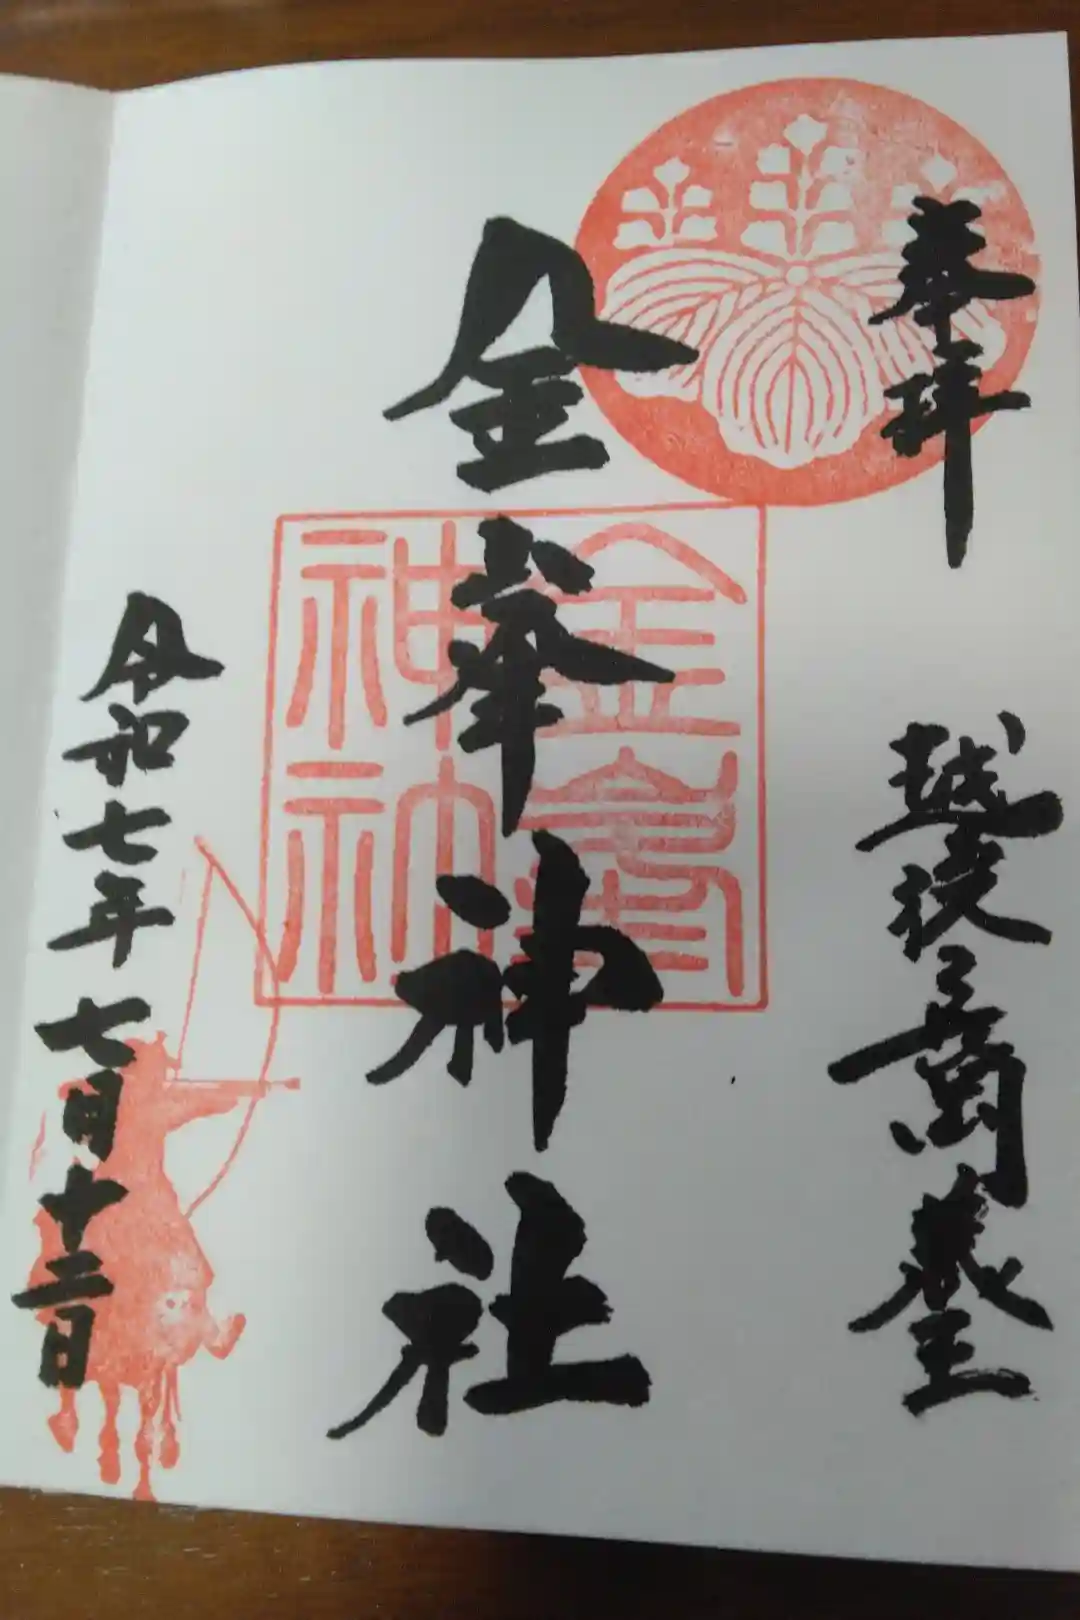 奉拝 越後 蔵王
金峯神社
金峯
神社
令和七年七月十二日